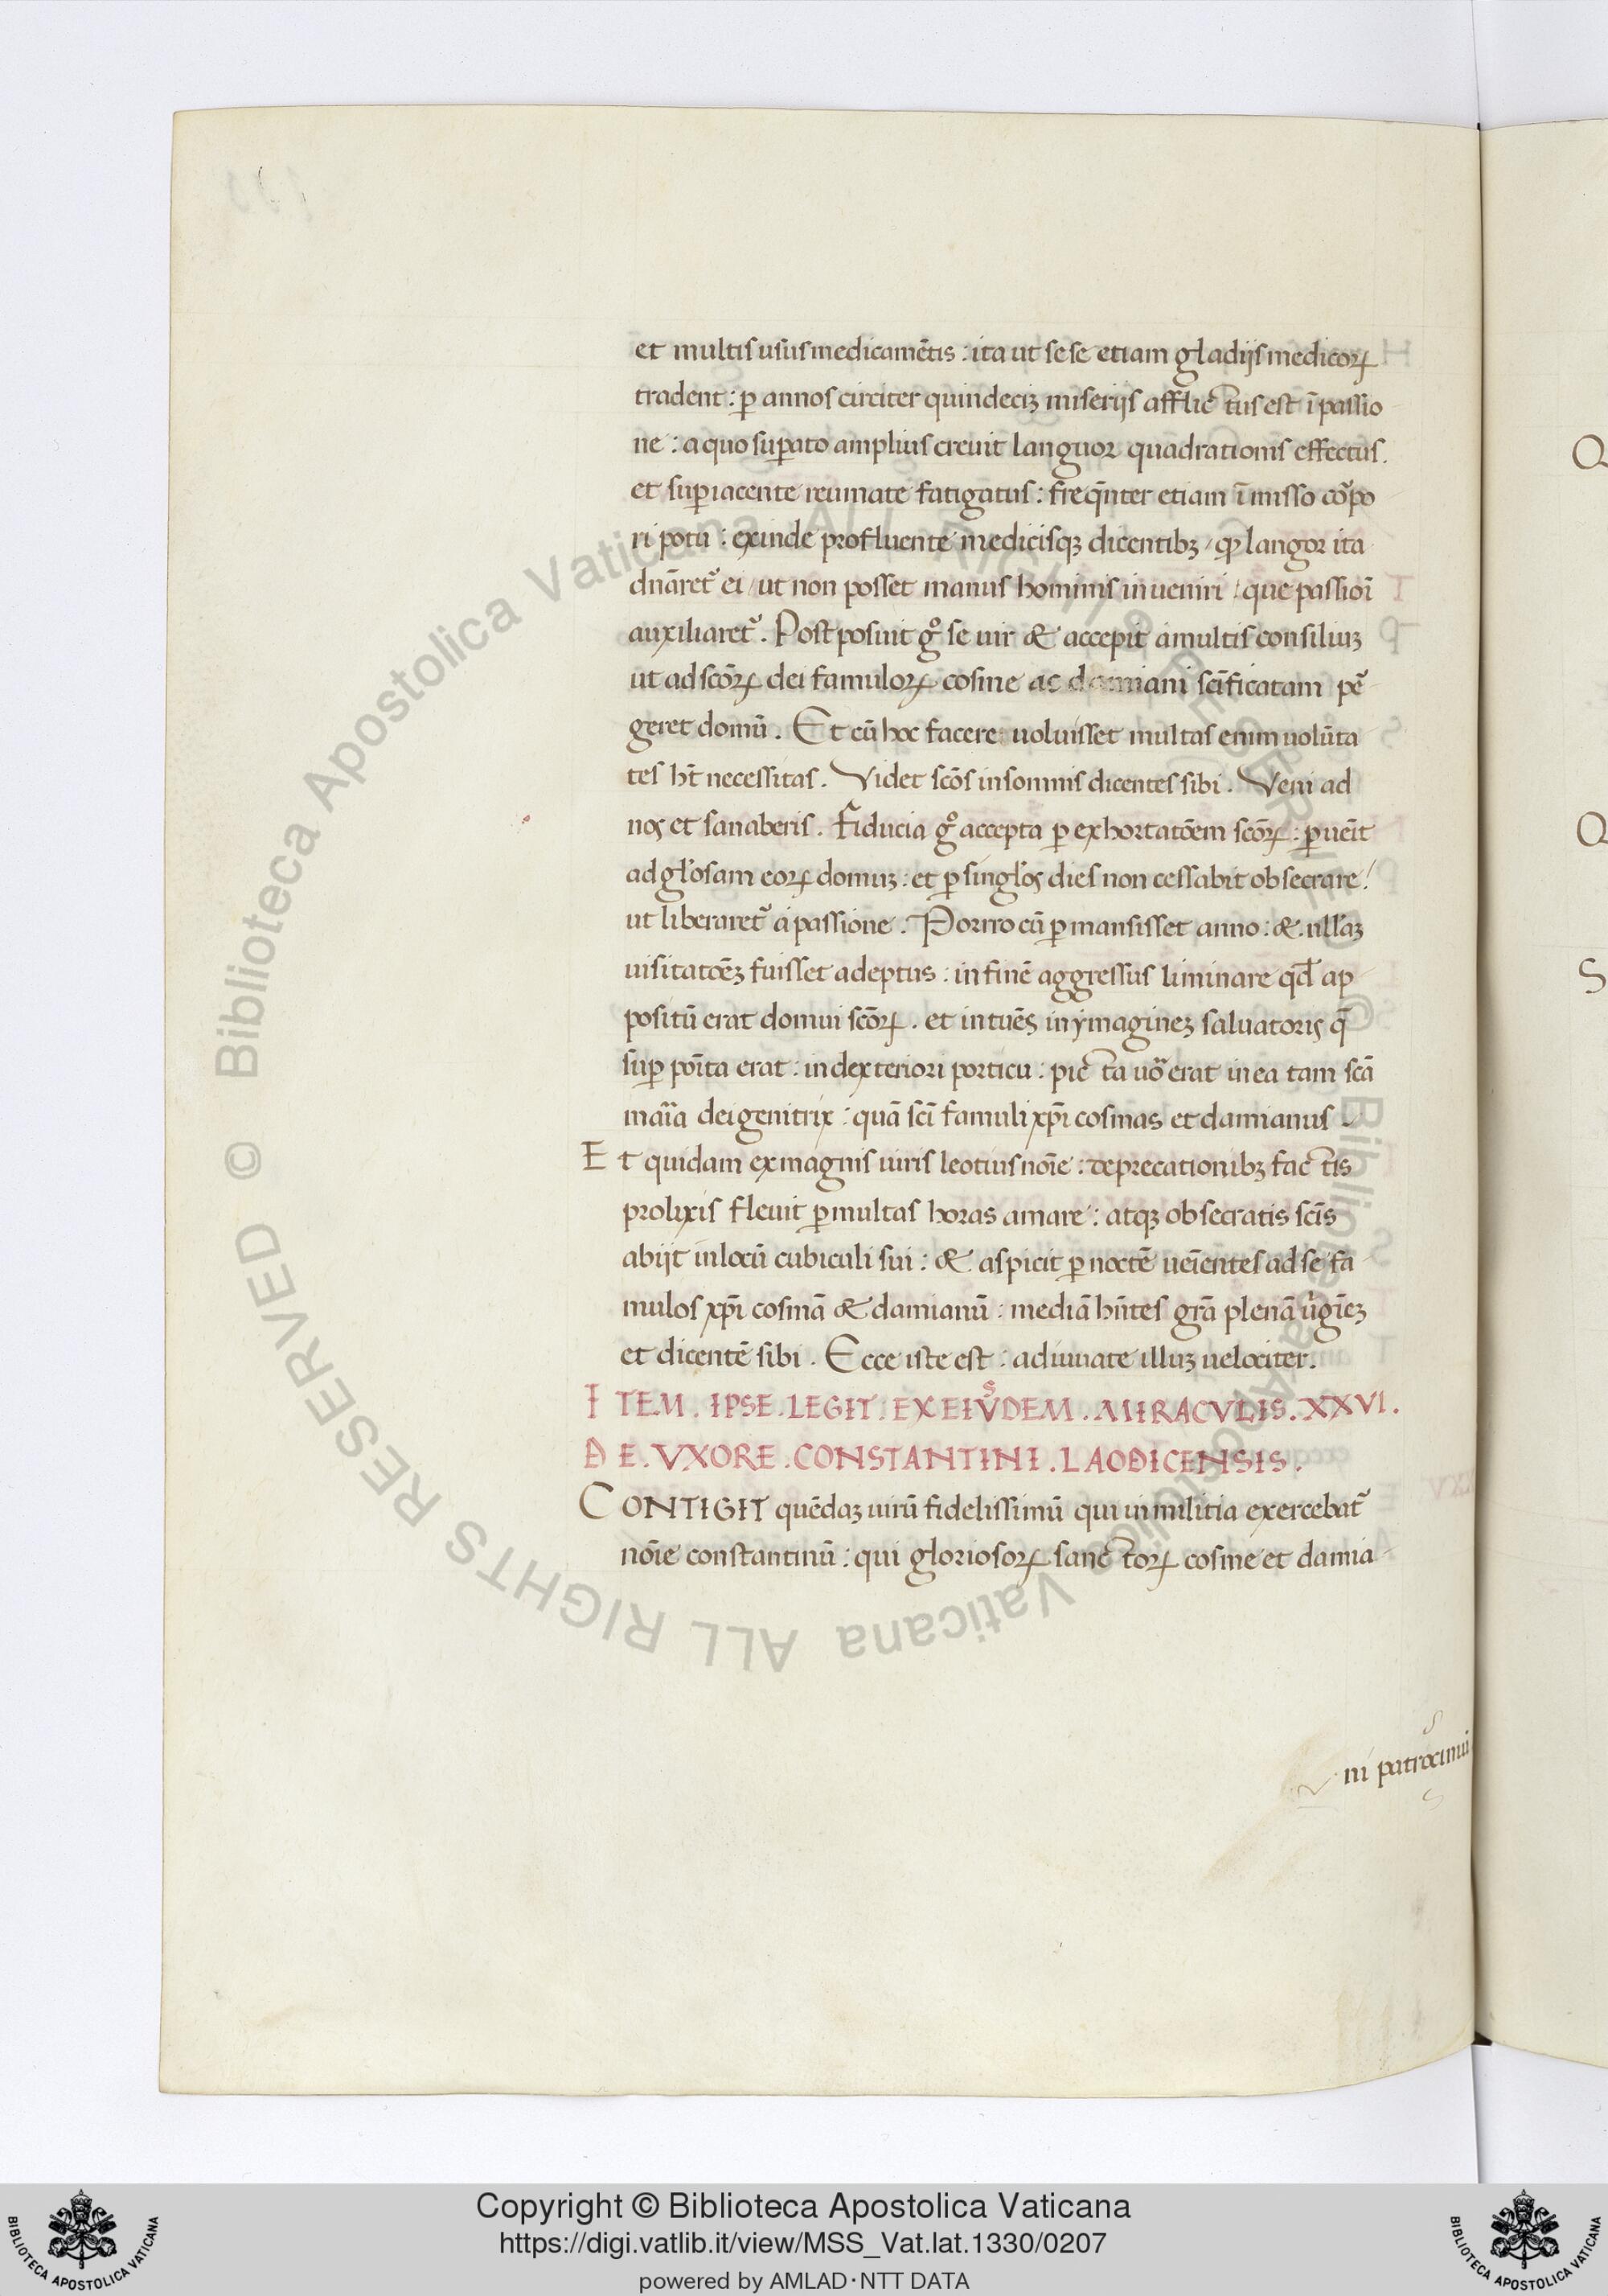 et multis usus medicamētis : ita ut sese etiam gladijs medicoꝝ
tradent : ꝑ annos circiter quindeciꝫ miserijs afflictus est ī passio
ne : a quo suꝑato amplius creuit languor quadrationis effectus.
et suꝑiacente reumate fatigatus : freq̄nter etiam īmisso cōꝛpo
ri potu : exinde profluente medicisqꝫ dicentibꝫ / ꝙ langor ita
dn̄aret᷑ ei / ut non posset manus hominis inueniri : que passioī
auxiliaret᷑. Postposuit gͦ se uir & accepit a multis consiliuꝫ
ut ad scōꝝ dei famuloꝝ cosme ac damiani scīficatam ꝑ
geret domū. Et cū hoc facere uoluisset multas enim uolūta
tes ht̄ necessitas. Videt scōs in somnis dicentes sibi. Veni ad
nos et sanaberis. Fiducia gͦ accepta ꝑ exhortatōem scōꝝ : ꝑueīt
ad gl'osam eoꝝ domuꝫ : et ꝑ singl'os dies non cessabit obsecrare !
ut liberaret᷑ a passione. Porro cū ꝑmansisset anno : & ullaꝫ
uisitatōeꝫ fuisset adeptus : in finē aggressus liminare qd̄ ap
positū erat domui scōꝝ. et intuēs in ymagineꝫ saluatoris q̄
suꝑ poīta erat : in dexteriori porticu : picta uo᷑ erat in ea tam scā
maīa dei genitrix : quā scī famuli xp̄i cosmas et damianus.
Et quidam ex magnis uiris leotius noīe : deprecationibꝫ factis
prolixis fleuit ꝑ multas horas amare : atqꝫ obsecratis scīs
abijt in locū cubiculi sui : & aspicit ꝑ noctē ueīentes ad se fa
mulos xp̄i cosmā & damianū : mediā hn̄tes grā plenā uͥgīeꝫ
et dicentē sibi. Ecce iste est : adiuuate illuꝫ uelociter.
ITEM. IPSE. LEGIT. EX EIVˢDEM. MIRACVLIS. XXVI.
DE. VXORE. CONSTANTINI. LAODICENSIS.
CONTIGIT quēdaꝫ uirū fidelissimū qui in militia exercebat᷑
noīe constantinū : qui gloriosoꝝ sanctoꝝ cosme et damia
ni patrocinii
Copyright © Biblioteca Apostolica Vaticana
https://digi.vatlib.it/view/MSS_Vat.lat.1330/0207
powered by AMLAD·NTT DATA
BIBLIOTECA APOSTOLICA VATICANA
BIBLIOTECA APOSTOLICA VATICANA
© Biblioteca Apostolica Vaticana ALL RIGHTS RESERVED © Biblioteca Apostolica Vaticana ALL RIGHTS RESERVED